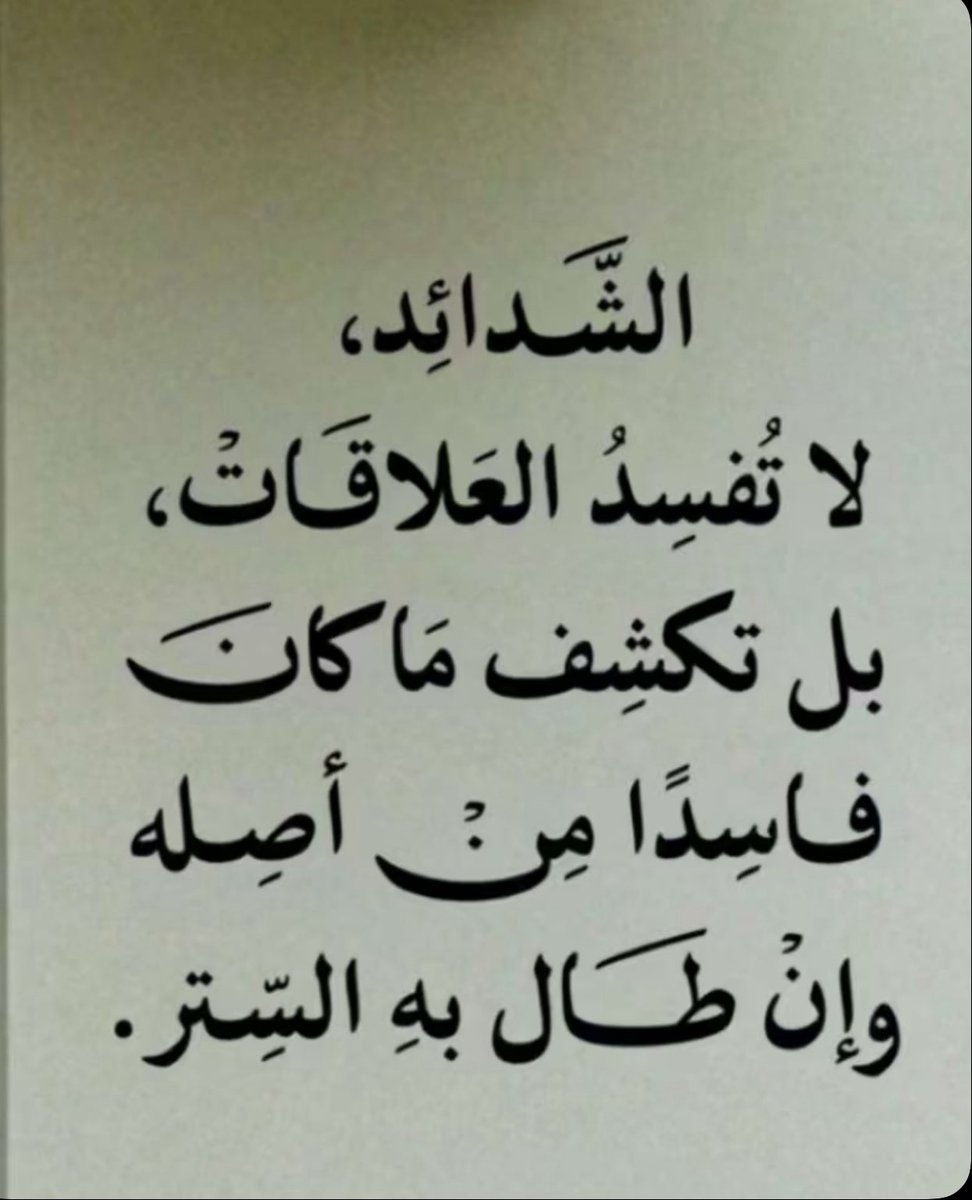 الشَّدائِد،
لا تُفسِدُ العَلاقَاتْ،
بل تكشِف مَا كانَ
فاسِدًا مِنْ أصِله
وإنْ طَال بهِ السِّتر.